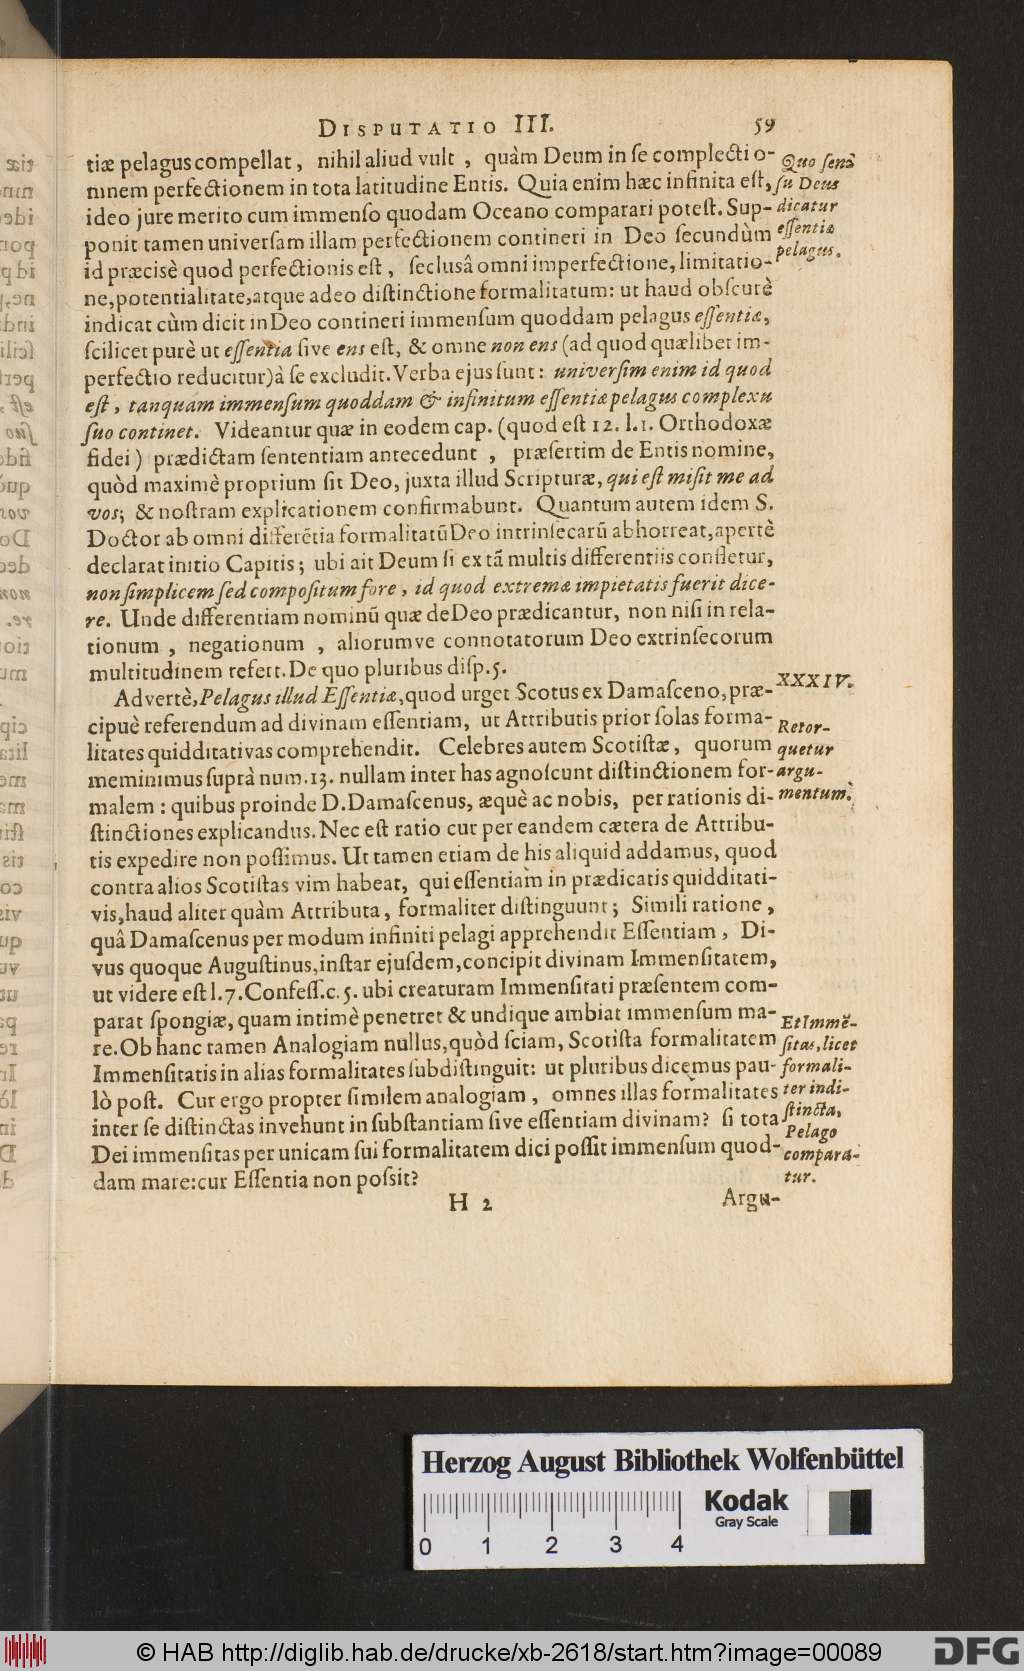 DISPUTATIO III. 59
tiæ pelagus compellat, nihil aliud vult, quàm Deum in se complecti o-
mnem perfectionem in tota latitudine Entis. Quia enim hæc infinita est,
ideo jure merito cum immenso quodam Oceano comparari potest. Sup-
ponit tamen universam illam perfectionem contineri in Deo secundùm
id præcisè quod perfectionis est, seclusâ omni imperfectione, limitatio-
ne, potentialitate, atque adeo distinctione formalitatum: ut haud obscurè
indicat cùm dicit in Deo contineri immensum quoddam pelagus essentiæ,
scilicet purè ut essentia sive ens est, & omne non ens (ad quod quælibet im-
perfectio reducitur) à se excludit. Verba ejus sunt: universim enim id quod
est, tanquam immensum quoddam & infinitum essentiæ pelagus complexu
suo continet. Videantur quæ in eodem cap. (quod est 12. l. 1. Orthodoxæ
fidei) prædictam sententiam antecedunt, præsertim de Entis nomine,
quòd maximè proprium sit Deo, juxta illud Scripturæ, qui est misit me ad
vos; & nostram explicationem confirmabunt. Quantum autem idem S.
Doctor ab omni differẽtia formalitatũ Deo intrinsecarũ abhorreat, apertè
declarat initio Capitis; ubi ait Deum si ex tã multis differentiis confletur,
non simplicem sed compositum fore, id quod extremæ impietatis fuerit dice-
re. Unde differentiam nominũ quæ de Deo prædicantur, non nisi in rela-
tionum, negationum, aliorumve connotatorum Deo extrinsecorum
multitudinem refert. De quo pluribus disp. 5.
Advertè, Pelagus illud Essentiæ, quod urget Scotus ex Damasceno, præ-
cipuè referendum ad divinam essentiam, ut Attributis prior solas forma-
litates quidditativas comprehendit. Celebres autem Scotistæ, quorum
meminimus suprà num. 13. nullam inter has agnoscunt distinctionem for-
malem: quibus proinde D. Damascenus, æquè ac nobis, per rationis di-
stinctiones explicandus. Nec est ratio cur per eandem cætera de Attribu-
tis expedire non possimus. Ut tamen etiam de his aliquid addamus, quod
contra alios Scotistas vim habeat, qui essentiam in prædicatis quidditati-
vis, haud aliter quàm Attributa, formaliter distinguunt; Simili ratione,
quâ Damascenus per modum infiniti pelagi apprehendit Essentiam, Di-
vus quoque Augustinus, instar ejusdem, concipit divinam Immensitatem,
ut videre est l. 7. Confess. c. 5. ubi creaturam Immensitati præsentem com-
parat spongiæ, quam intimè penetret & undique ambiat immensum ma-
re. Ob hanc tamen Analogiam nullus, quòd sciam, Scotista formalitatem
Immensitatis in alias formalitates subdistinguit: ut pluribus dicemus pau-
lò post. Cur ergo propter similem analogiam, omnes illas formalitates
inter se distinctas invehunt in substantiam sive essentiam divinam? si tota
Dei immensitas per unicam sui formalitatem dici possit immensum quod-
dam mare: cur Essentia non possit?
H 2 Argu-
Quo sensu
su Deus
dicatur
essentiæ
pelagus.
XXXIV.
Retor-
quetur
argu-
mentum.
Et Immẽ-
sitas, licet
formali-
ter indi-
stincta,
Pelago
compara-
tur.
Herzog August Bibliothek Wolfenbüttel
Kodak
Gray Scale
0 1 2 3 4
© HAB http://diglib.hab.de/drucke/xb-2618/start.htm?image=00089
DFG